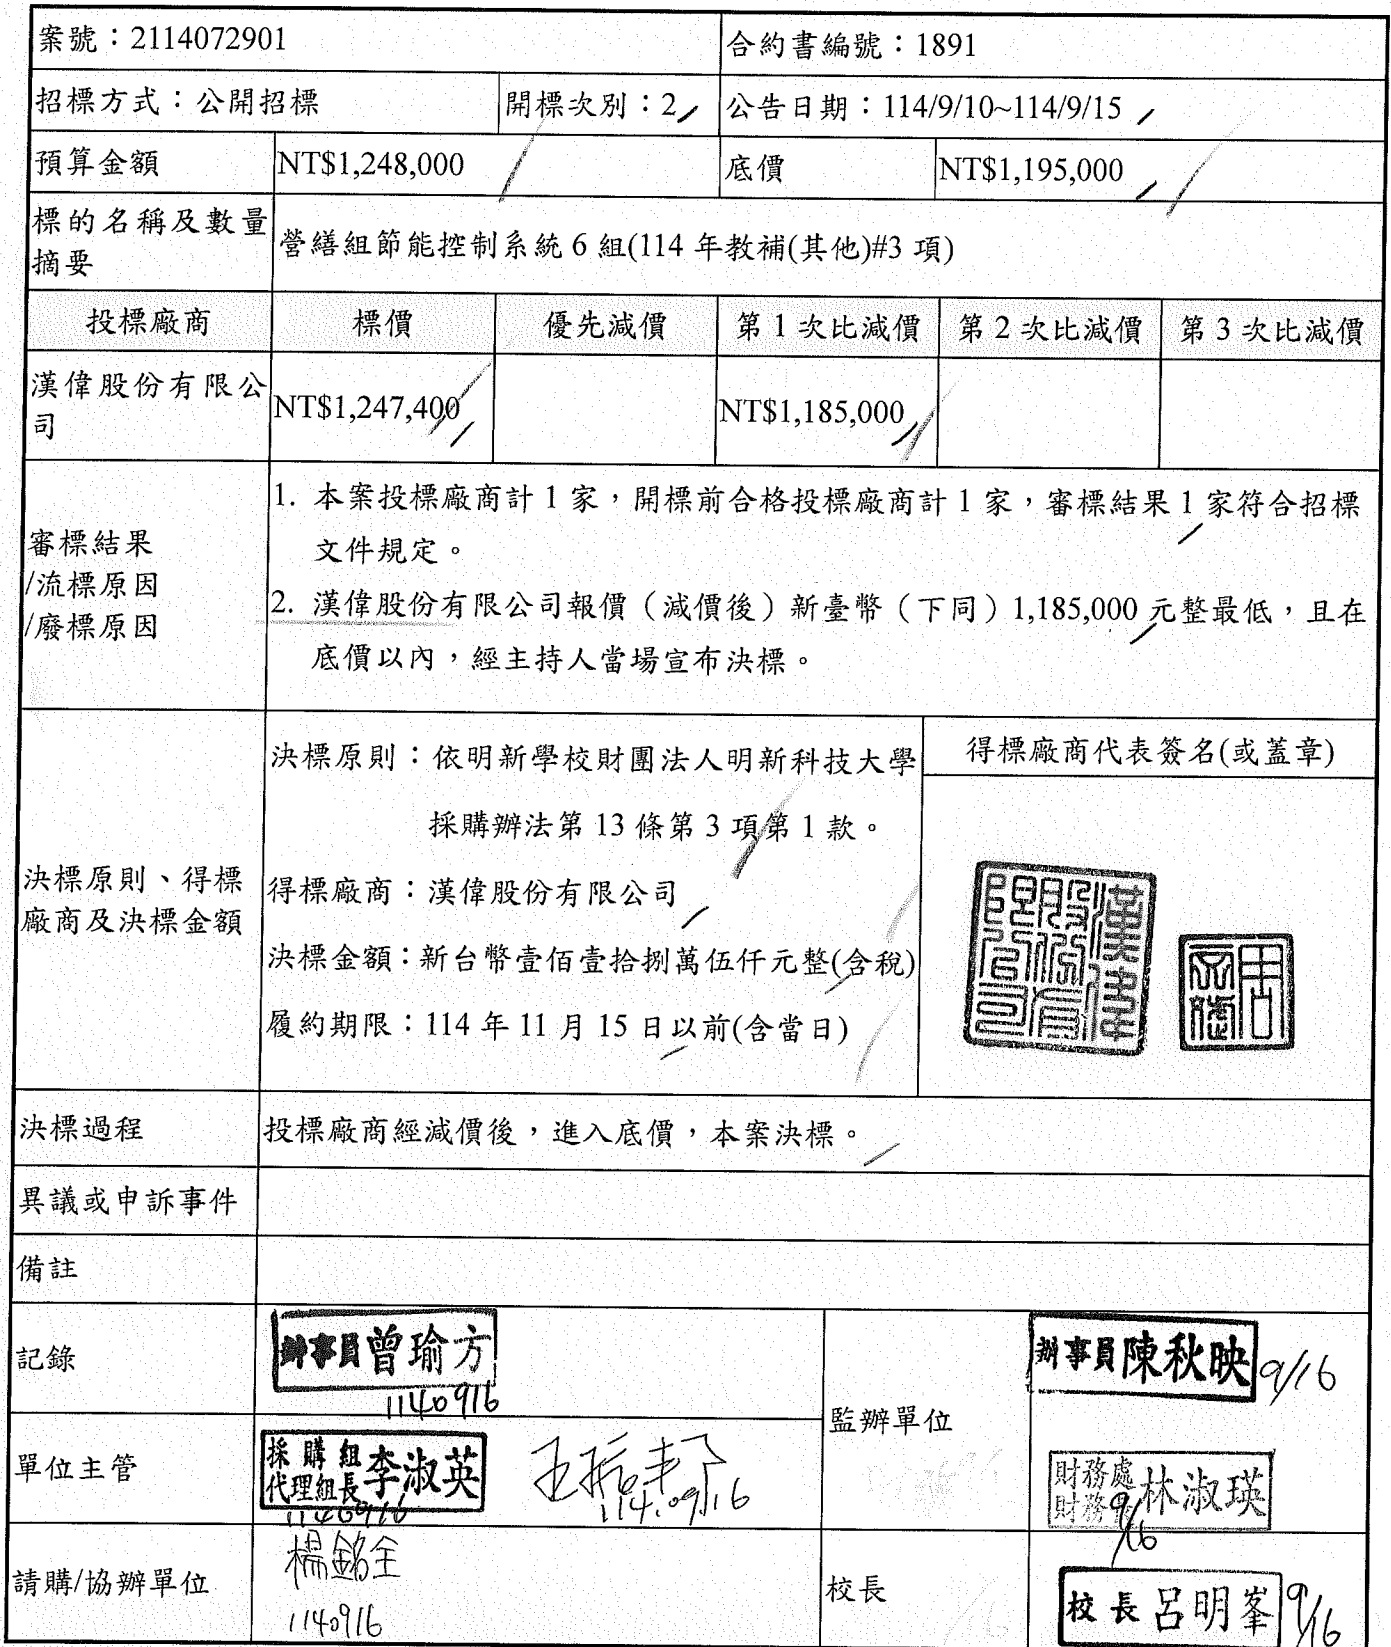 案號：2114072901
合約書編號：1891
招標方式：公開招標
開標次別：2
公告日期：114/9/10~114/9/15
預算金額
NT$1,248,000
底價
NT$1,195,000
標的名稱及數量
摘要
營繕組節能控制系統 6 組(114 年教補(其他)#3 項)
投標廠商
標價
優先減價
第 1 次比減價
第 2 次比減價
第 3 次比減價
漢偉股份有限公
司
NT$1,247,400
NT$1,185,000
審標結果
/流標原因
/廢標原因
1. 本案投標廠商計 1 家，開標前合格投標廠商計 1 家，審標結果 1 家符合招標
文件規定。
2. 漢偉股份有限公司報價（減價後）新臺幣（下同）1,185,000 元整最低，且在
底價以內，經主持人當場宣布決標。
決標原則、得標
廠商及決標金額
決標原則：依明新學校財團法人明新科技大學
採購辦法第 13 條第 3 項第 1 款。
得標廠商：漢偉股份有限公司
決標金額：新台幣壹佰壹拾捌萬伍仟元整(含稅)
履約期限：114 年 11 月 15 日以前(含當日)
得標廠商代表簽名(或蓋章)
漢偉
股份有
限公司
決標過程
投標廠商經減價後，進入底價，本案決標。
異議或申訴事件
備註
記錄
辦事員曾瑜方
1140916
監辦單位
辦事員陳秋映 9/16
單位主管
採購組
代理組長李淑英
1140916
114.09.16
財務處
財務
林淑瑛
9/16
請購/協辦單位
楊銘全
1140916
校長
校長呂明峯 9/16